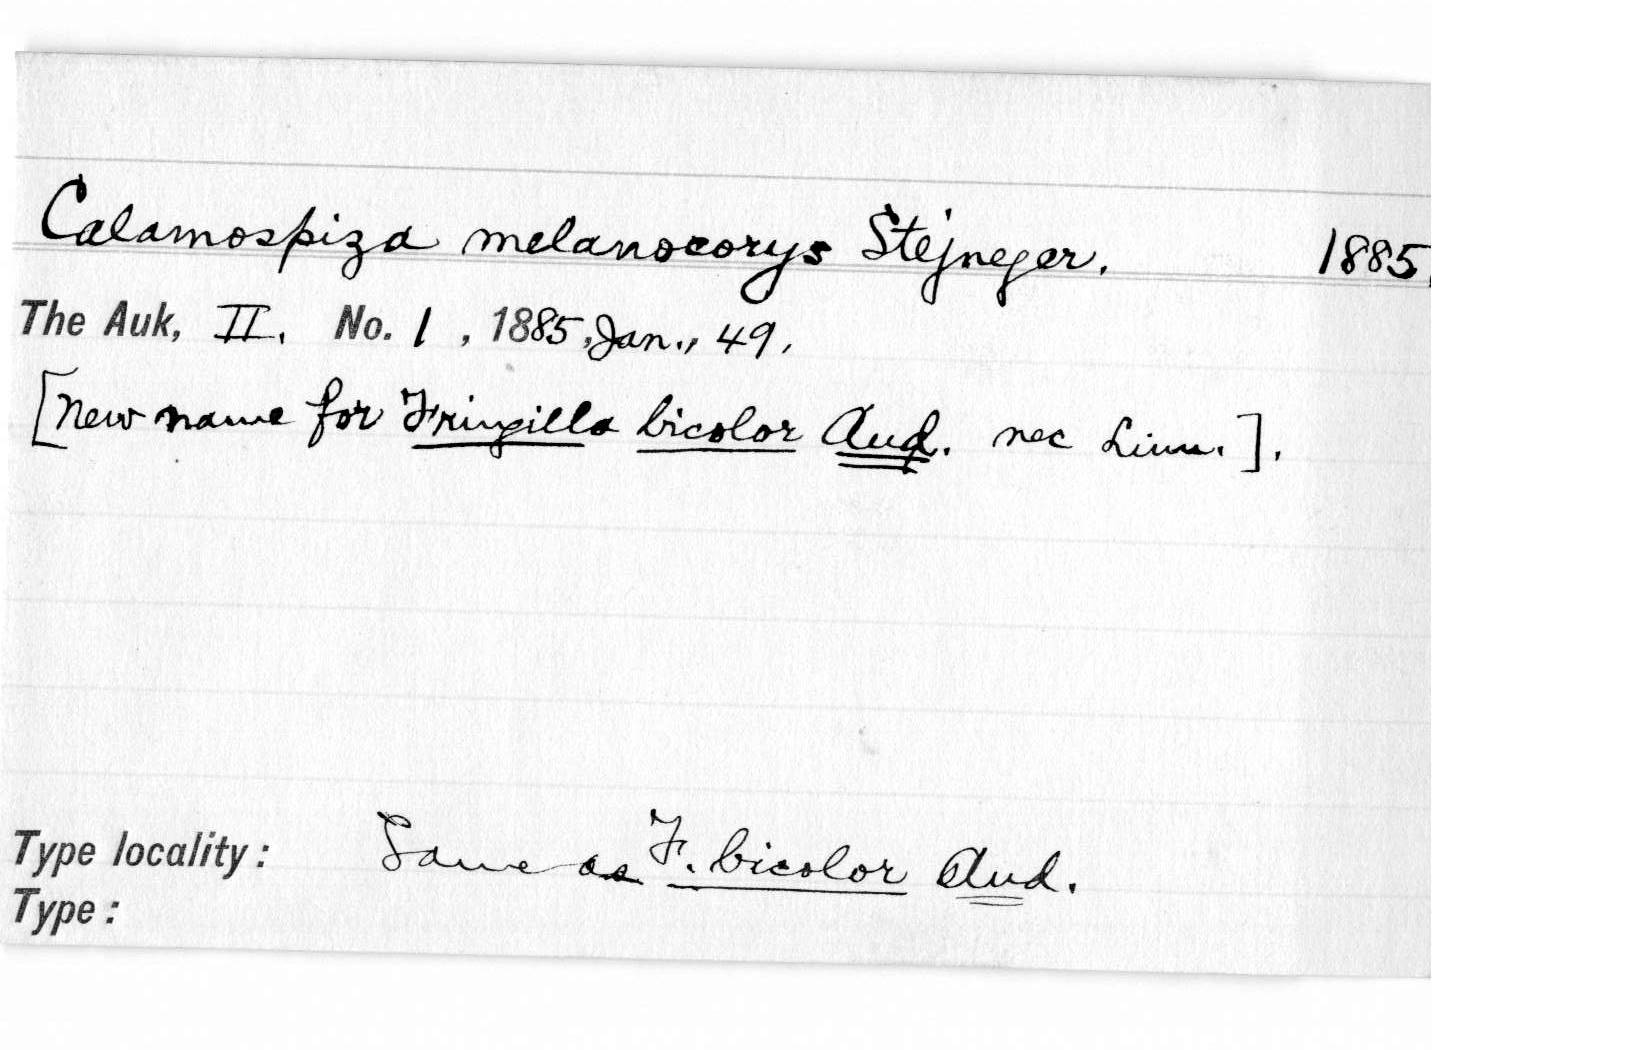 Calamospiza melanocorys Stejneger. 1885.
The Auk, II. No. 1, 1885, Jan., 49.
[New name for Fringilla bicolor Aud. nec Linn.].
Type locality: Same as F. bicolor Aud.
Type: